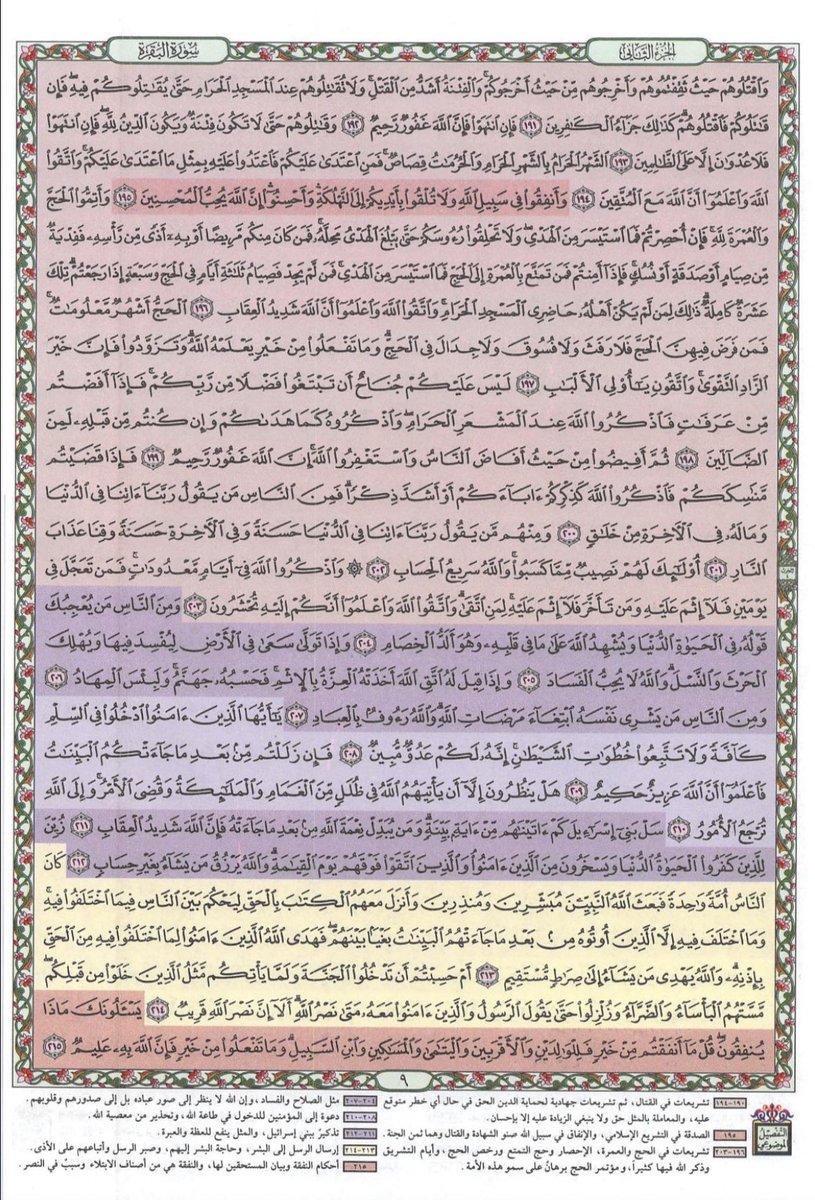 الجزء الثاني
سورة البقرة
وَاقْتُلُوهُمْ حَيْثُ ثَقِفْتُمُوهُمْ وَأَخْرِجُوهُم مِّنْ حَيْثُ أَخْرَجُوكُمْ ۚ وَالْفِتْنَةُ أَشَدُّ مِنَ الْقَتْلِ ۚ وَلَا تُقَاتِلُوهُمْ عِندَ الْمَسْجِدِ الْحَرَامِ حَتَّىٰ يُقَاتِلُوكُمْ فِيهِ ۖ فَإِن
قَاتَلُوكُمْ فَاقْتُلُوهُمْ ۗ كَذَٰلِكَ جَزَاءُ الْكَافِرِينَ ﴿١٩١﴾ فَإِنِ انتَهَوْا فَإِنَّ اللَّهَ غَفُورٌ رَّحِيمٌ ﴿١٩٢﴾ وَقَاتِلُوهُمْ حَتَّىٰ لَا تَكُونَ فِتْنَةٌ وَيَكُونَ الدِّينُ لِلَّهِ ۖ فَإِنِ انتَهَوْا
فَلَا عُدْوَانَ إِلَّا عَلَى الظَّالِمِينَ ﴿١٩٣﴾ الشَّهْرُ الْحَرَامُ بِالشَّهْرِ الْحَرَامِ وَالْحُرُمَاتُ قِصَاصٌ ۚ فَمَنِ اعْتَدَىٰ عَلَيْكُمْ فَاعْتَدُوا عَلَيْهِ بِمِثْلِ مَا اعْتَدَىٰ عَلَيْكُمْ ۚ وَاتَّقُوا
اللَّهَ وَاعْلَمُوا أَنَّ اللَّهَ مَعَ الْمُتَّقِينَ ﴿١٩٤﴾ وَأَنفِقُوا فِي سَبِيلِ اللَّهِ وَلَا تُلْقُوا بِأَيْدِيكُمْ إِلَى التَّهْلُكَةِ ۛ وَأَحْسِنُوا ۛ إِنَّ اللَّهَ يُحِبُّ الْمُحْسِنِينَ ﴿١٩٥﴾ وَأَتِمُّوا الْحَجَّ
وَالْعُمْرَةَ لِلَّهِ ۚ فَإِنْ أُحْصِرْتُمْ فَمَا اسْتَيْسَرَ مِنَ الْهَدْيِ ۖ وَلَا تَحْلِقُوا رُءُوسَكُمْ حَتَّىٰ يَبْلُغَ الْهَدْيُ مَحِلَّهُ ۚ فَمَن كَانَ مِنكُم مَّرِيضًا أَوْ بِهِ أَذًى مِّن رَّأْسِهِ فَفِدْيَةٌ
مِّن صِيَامٍ أَوْ صَدَقَةٍ أَوْ نُسُكٍ ۚ فَإِذَا أَمِنتُمْ فَمَن تَمَتَّعَ بِالْعُمْرَةِ إِلَى الْحَجِّ فَمَا اسْتَيْسَرَ مِنَ الْهَدْيِ ۚ فَمَن لَّمْ يَجِدْ فَصِيَامُ ثَلَاثَةِ أَيَّامٍ فِي الْحَجِّ وَسَبْعَةٍ إِذَا رَجَعْتُمْ ۗ تِلْكَ
عَشَرَةٌ كَامِلَةٌ ۗ ذَٰلِكَ لِمَن لَّمْ يَكُنْ أَهْلُهُ حَاضِرِي الْمَسْجِدِ الْحَرَامِ ۚ وَاتَّقُوا اللَّهَ وَاعْلَمُوا أَنَّ اللَّهَ شَدِيدُ الْعِقَابِ ﴿١٩٦﴾ الْحَجُّ أَشْهُرٌ مَّعْلُومَاتٌ ۚ
فَمَن فَرَضَ فِيهِنَّ الْحَجَّ فَلَا رَفَثَ وَلَا فُسُوقَ وَلَا جِدَالَ فِي الْحَجِّ ۗ وَمَا تَفْعَلُوا مِنْ خَيْرٍ يَعْلَمْهُ اللَّهُ ۗ وَتَزَوَّدُوا فَإِنَّ خَيْرَ
الزَّادِ التَّقْوَىٰ ۚ وَاتَّقُونِ يَا أُولِي الْأَلْبَابِ ﴿١٩٧﴾ لَيْسَ عَلَيْكُمْ جُنَاحٌ أَن تَبْتَغُوا فَضْلًا مِّن رَّبِّكُمْ ۚ فَإِذَا أَفَضْتُم
مِّنْ عَرَفَاتٍ فَاذْكُرُوا اللَّهَ عِندَ الْمَشْعَرِ الْحَرَامِ ۖ وَاذْكُرُوهُ كَمَا هَدَاكُمْ وَإِن كُنتُم مِّن قَبْلِهِ لَمِنَ
الضَّالِّينَ ﴿١٩٨﴾ ثُمَّ أَفِيضُوا مِنْ حَيْثُ أَفَاضَ النَّاسُ وَاسْتَغْفِرُوا اللَّهَ ۚ إِنَّ اللَّهَ غَفُورٌ رَّحِيمٌ ﴿١٩٩﴾ فَإِذَا قَضَيْتُم
مَّنَاسِكَكُمْ فَاذْكُرُوا اللَّهَ كَذِكْرِكُمْ آبَاءَكُمْ أَوْ أَشَدَّ ذِكْرًا ۗ فَمِنَ النَّاسِ مَن يَقُولُ رَبَّنَا آتِنَا فِي الدُّنْيَا
وَمَا لَهُ فِي الْآخِرَةِ مِنْ خَلَاقٍ ﴿٢٠٠﴾ وَمِنْهُم مَّن يَقُولُ رَبَّنَا آتِنَا فِي الدُّنْيَا حَسَنَةً وَفِي الْآخِرَةِ حَسَنَةً وَقِنَا عَذَابَ
النَّارِ ﴿٢٠١﴾ أُولَٰئِكَ لَهُمْ نَصِيبٌ مِّمَّا كَسَبُوا ۚ وَاللَّهُ سَرِيعُ الْحِسَابِ ﴿٢٠٢﴾ ۞ وَاذْكُرُوا اللَّهَ فِي أَيَّامٍ مَّعْدُودَاتٍ ۚ فَمَن تَعَجَّلَ فِي
يَوْمَيْنِ فَلَا إِثْمَ عَلَيْهِ وَمَن تَأَخَّرَ فَلَا إِثْمَ عَلَيْهِ ۚ لِمَنِ اتَّقَىٰ ۗ وَاتَّقُوا اللَّهَ وَاعْلَمُوا أَنَّكُمْ إِلَيْهِ تُحْشَرُونَ ﴿٢٠٣﴾ وَمِنَ النَّاسِ مَن يُعْجِبُكَ
قَوْلُهُ فِي الْحَيَاةِ الدُّنْيَا وَيُشْهِدُ اللَّهَ عَلَىٰ مَا فِي قَلْبِهِ وَهُوَ أَلَدُّ الْخِصَامِ ﴿٢٠٤﴾ وَإِذَا تَوَلَّىٰ سَعَىٰ فِي الْأَرْضِ لِيُفْسِدَ فِيهَا وَيُهْلِكَ
الْحَرْثَ وَالنَّسْلَ ۗ وَاللَّهُ لَا يُحِبُّ الْفَسَادَ ﴿٢٠٥﴾ وَإِذَا قِيلَ لَهُ اتَّقِ اللَّهَ أَخَذَتْهُ الْعِزَّةُ بِالْإِثْمِ ۚ فَحَسْبُهُ جَهَنَّمُ ۚ وَلَبِئْسَ الْمِهَادُ ﴿٢٠٦﴾
وَمِنَ النَّاسِ مَن يَشْرِي نَفْسَهُ ابْتِغَاءَ مَرْضَاتِ اللَّهِ ۗ وَاللَّهُ رَءُوفٌ بِالْعِبَادِ ﴿٢٠٧﴾ يَا أَيُّهَا الَّذِينَ آمَنُوا ادْخُلُوا فِي السِّلْمِ
كَافَّةً وَلَا تَتَّبِعُوا خُطُوَاتِ الشَّيْطَانِ ۚ إِنَّهُ لَكُمْ عَدُوٌّ مُّبِينٌ ﴿٢٠٨﴾ فَإِن زَلَلْتُم مِّن بَعْدِ مَا جَاءَتْكُمُ الْبَيِّنَاتُ
فَاعْلَمُوا أَنَّ اللَّهَ عَزِيزٌ حَكِيمٌ ﴿٢٠٩﴾ هَلْ يَنظُرُونَ إِلَّا أَن يَأْتِيَهُمُ اللَّهُ فِي ظُلَلٍ مِّنَ الْغَمَامِ وَالْمَلَائِكَةُ وَقُضِيَ الْأَمْرُ ۚ وَإِلَى اللَّهِ
تُرْجَعُ الْأُمُورُ ﴿٢١٠﴾ سَلْ بَنِي إِسْرَائِيلَ كَمْ آتَيْنَاهُم مِّنْ آيَةٍ بَيِّنَةٍ ۗ وَمَن يُبَدِّلْ نِعْمَةَ اللَّهِ مِن بَعْدِ مَا جَاءَتْهُ فَإِنَّ اللَّهَ شَدِيدُ الْعِقَابِ ﴿٢١١﴾ زُيِّنَ
لِلَّذِينَ كَفَرُوا الْحَيَاةُ الدُّنْيَا وَيَسْخَرُونَ مِنَ الَّذِينَ آمَنُوا ۘ وَالَّذِينَ اتَّقَوْا فَوْقَهُمْ يَوْمَ الْقِيَامَةِ ۗ وَاللَّهُ يَرْزُقُ مَن يَشَاءُ بِغَيْرِ حِسَابٍ ﴿٢١٢﴾ كَانَ
النَّاسُ أُمَّةً وَاحِدَةً فَبَعَثَ اللَّهُ النَّبِيِّينَ مُبَشِّرِينَ وَمُنذِرِينَ وَأَنزَلَ مَعَهُمُ الْكِتَابَ بِالْحَقِّ لِيَحْكُمَ بَيْنَ النَّاسِ فِيمَا اخْتَلَفُوا فِيهِ ۚ
وَمَا اخْتَلَفَ فِيهِ إِلَّا الَّذِينَ أُوتُوهُ مِن بَعْدِ مَا جَاءَتْهُمُ الْبَيِّنَاتُ بَغْيًا بَيْنَهُمْ ۖ فَهَدَى اللَّهُ الَّذِينَ آمَنُوا لِمَا اخْتَلَفُوا فِيهِ مِنَ الْحَقِّ
بِإِذْنِهِ ۗ وَاللَّهُ يَهْدِي مَن يَشَاءُ إِلَىٰ صِرَاطٍ مُّسْتَقِيمٍ ﴿٢١٣﴾ أَمْ حَسِبْتُمْ أَن تَدْخُلُوا الْجَنَّةَ وَلَمَّا يَأْتِكُم مَّثَلُ الَّذِينَ خَلَوْا مِن قَبْلِكُم ۖ
مَّسَّتْهُمُ الْبَأْسَاءُ وَالضَّرَّاءُ وَزُلْزِلُوا حَتَّىٰ يَقُولَ الرَّسُولُ وَالَّذِينَ آمَنُوا مَعَهُ مَتَىٰ نَصْرُ اللَّهِ ۗ أَلَا إِنَّ نَصْرَ اللَّهِ قَرِيبٌ ﴿٢١٤﴾ يَسْأَلُونَكَ مَاذَا
يُنفِقُونَ ۖ قُلْ مَا أَنفَقْتُم مِّنْ خَيْرٍ فَلِلْوَالِدَيْنِ وَالْأَقْرَبِينَ وَالْيَتَامَىٰ وَالْمَسَاكِينِ وَابْنِ السَّبِيلِ ۗ وَمَا تَفْعَلُوا مِنْ خَيْرٍ فَإِنَّ اللَّهَ بِهِ عَلِيمٌ ﴿٢١٥﴾
٩
التفصيل الموضوعي
١٩٠-١٩٤ تشريعات في القتال، ثم تشريعات جهادية لحماية الدين الحق في حال أي خطر متوقع
عليه، والمعاملة بالمثل حق ولا ينبغي الزيادة عليه إلا بإحسان.
١٩٥ الصدقة في التشريع الإسلامي، والإنفاق في سبيل الله صنو الشهادة والقتال وهما ثمن الجنة.
١٩٦-٢٠٣ تشريعات في الحج والعمرة، الإحصار وحج التمتع ورخص الحج، وأيام التشريق
وذكر الله فيها كثيراً، ومؤتمر الحج برهان على سمو هذه الأمة.
٢٠٤-٢٠٧ مثل الصلاح والفساد، وإن الله لا ينظر إلى صور عباده بل إلى صدورهم وقلوبهم.
٢٠٨-٢١٠ دعوة إلى المؤمنين للدخول في طاعة الله، وتحذير من معصية الله.
٢١١-٢١٢ تذكير ببني إسرائيل، والمثل ينفع للعظة والعبرة.
٢١٣-٢١٤ إرسال الرسل إلى البشر، وحاجة البشر إليهم، وصبر الرسل وأتباعهم على الأذى.
٢١٥ أحكام النفقة وبيان المستحقين لها، والنفقة هي من أصناف الابتلاء وسبب في النصر.